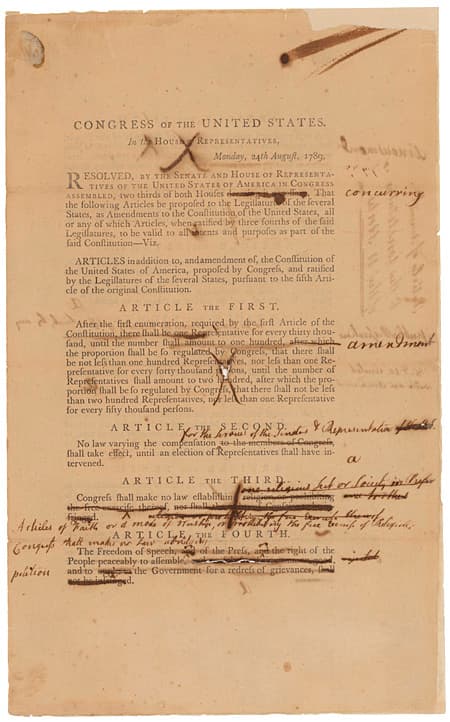 CONGRESS OF THE UNITED STATES.
In the HOUSE of REPRESENTATIVES,
Monday, 24th August, 1789,
RESOLVED, BY THE SENATE AND HOUSE OF REPRESENTA-
TIVES OF THE UNITED STATES OF AMERICA IN CONGRESS
ASSEMBLED, two thirds of both Houses deeming it necessary, That concurring
the following Articles be proposed to the Legislatures of the several
States, as Amendments to the Constitution of the United States, all
or any of which Articles, when ratified by three fourths of the said
Legislatures, to be valid to all intents and purposes as part of the
said Constitution—Viz.
ARTICLES in addition to, and amendment of, the Constitution of
the United States of America, proposed by Congress, and ratified
by the Legislatures of the several States, pursuant to the fifth Arti-
cle of the original Constitution.
ARTICLE THE FIRST.
After the first enumeration, required by the first Article of the
Constitution, there shall be one Representative for every thirty thou-
sand, until the number shall amount to one hundred, after which amendment
the proportion shall be so regulated by Congress, that there shall
be not less than one hundred Representatives, nor less than one Re-
presentative for every forty thousand persons, until the number of
Representatives shall amount to two hundred, after which the pro-
portion shall be so regulated by Congress, that there shall not be less
than two hundred Representatives, nor less than one Representative
for every fifty thousand persons.
ARTICLE THE SECOND.
for the services of the Senators & Representatives
No law varying the compensation to the members of Congress,
shall take effect, until an election of Representatives shall have in- a
tervened.
ARTICLE THE THIRD.
one religious Sect or Society in
Congress shall make no law establishing religion or prohibiting
the free exercise thereof, nor shall
infringed.
Articles of Faith or a mode of Worship, or prohibiting the free exercise of Religion,
Congress shall make no Law abridging
ARTICLE THE FOURTH.
The Freedom of Speech, and of the Press, and the right of the
People peaceably to assemble,
petition and to to the Government for a redress of grievances, shall
not be infringed.